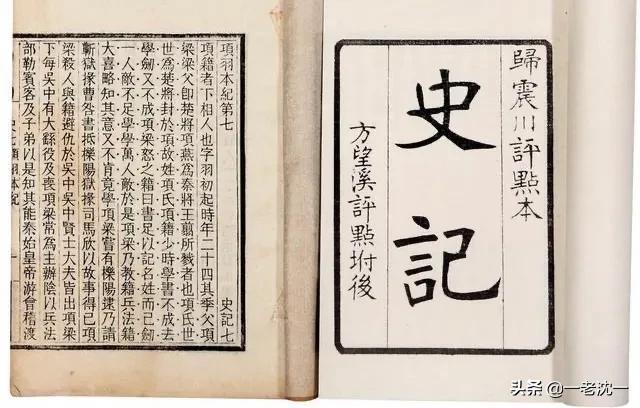 歸震川評點本
史記
方望溪評點坿後
項羽本紀第七 史記七
項籍者下相人也字羽初起時年二十四其季父項
梁梁父即楚將項燕為秦將王翦所戮者也項氏世
世為楚將封於項故姓項氏項籍少時學書不成去
學劒又不成項梁怒之籍曰書足以記名姓而已劒
一人敵不足學學萬人敵於是項梁乃教籍兵法籍
大喜略知其意又不肯竟學項梁嘗有櫟陽逮乃請
蘄獄掾曹咎書抵櫟陽獄掾司馬欣以故事得已項
梁殺人與籍避仇於吳中吳中賢士大夫皆出項梁
下每吳中有大繇役及喪項梁常為主辦陰以兵法
部勒賓客及子弟以是知其能秦始皇帝游會稽渡
头条 @一老沈一